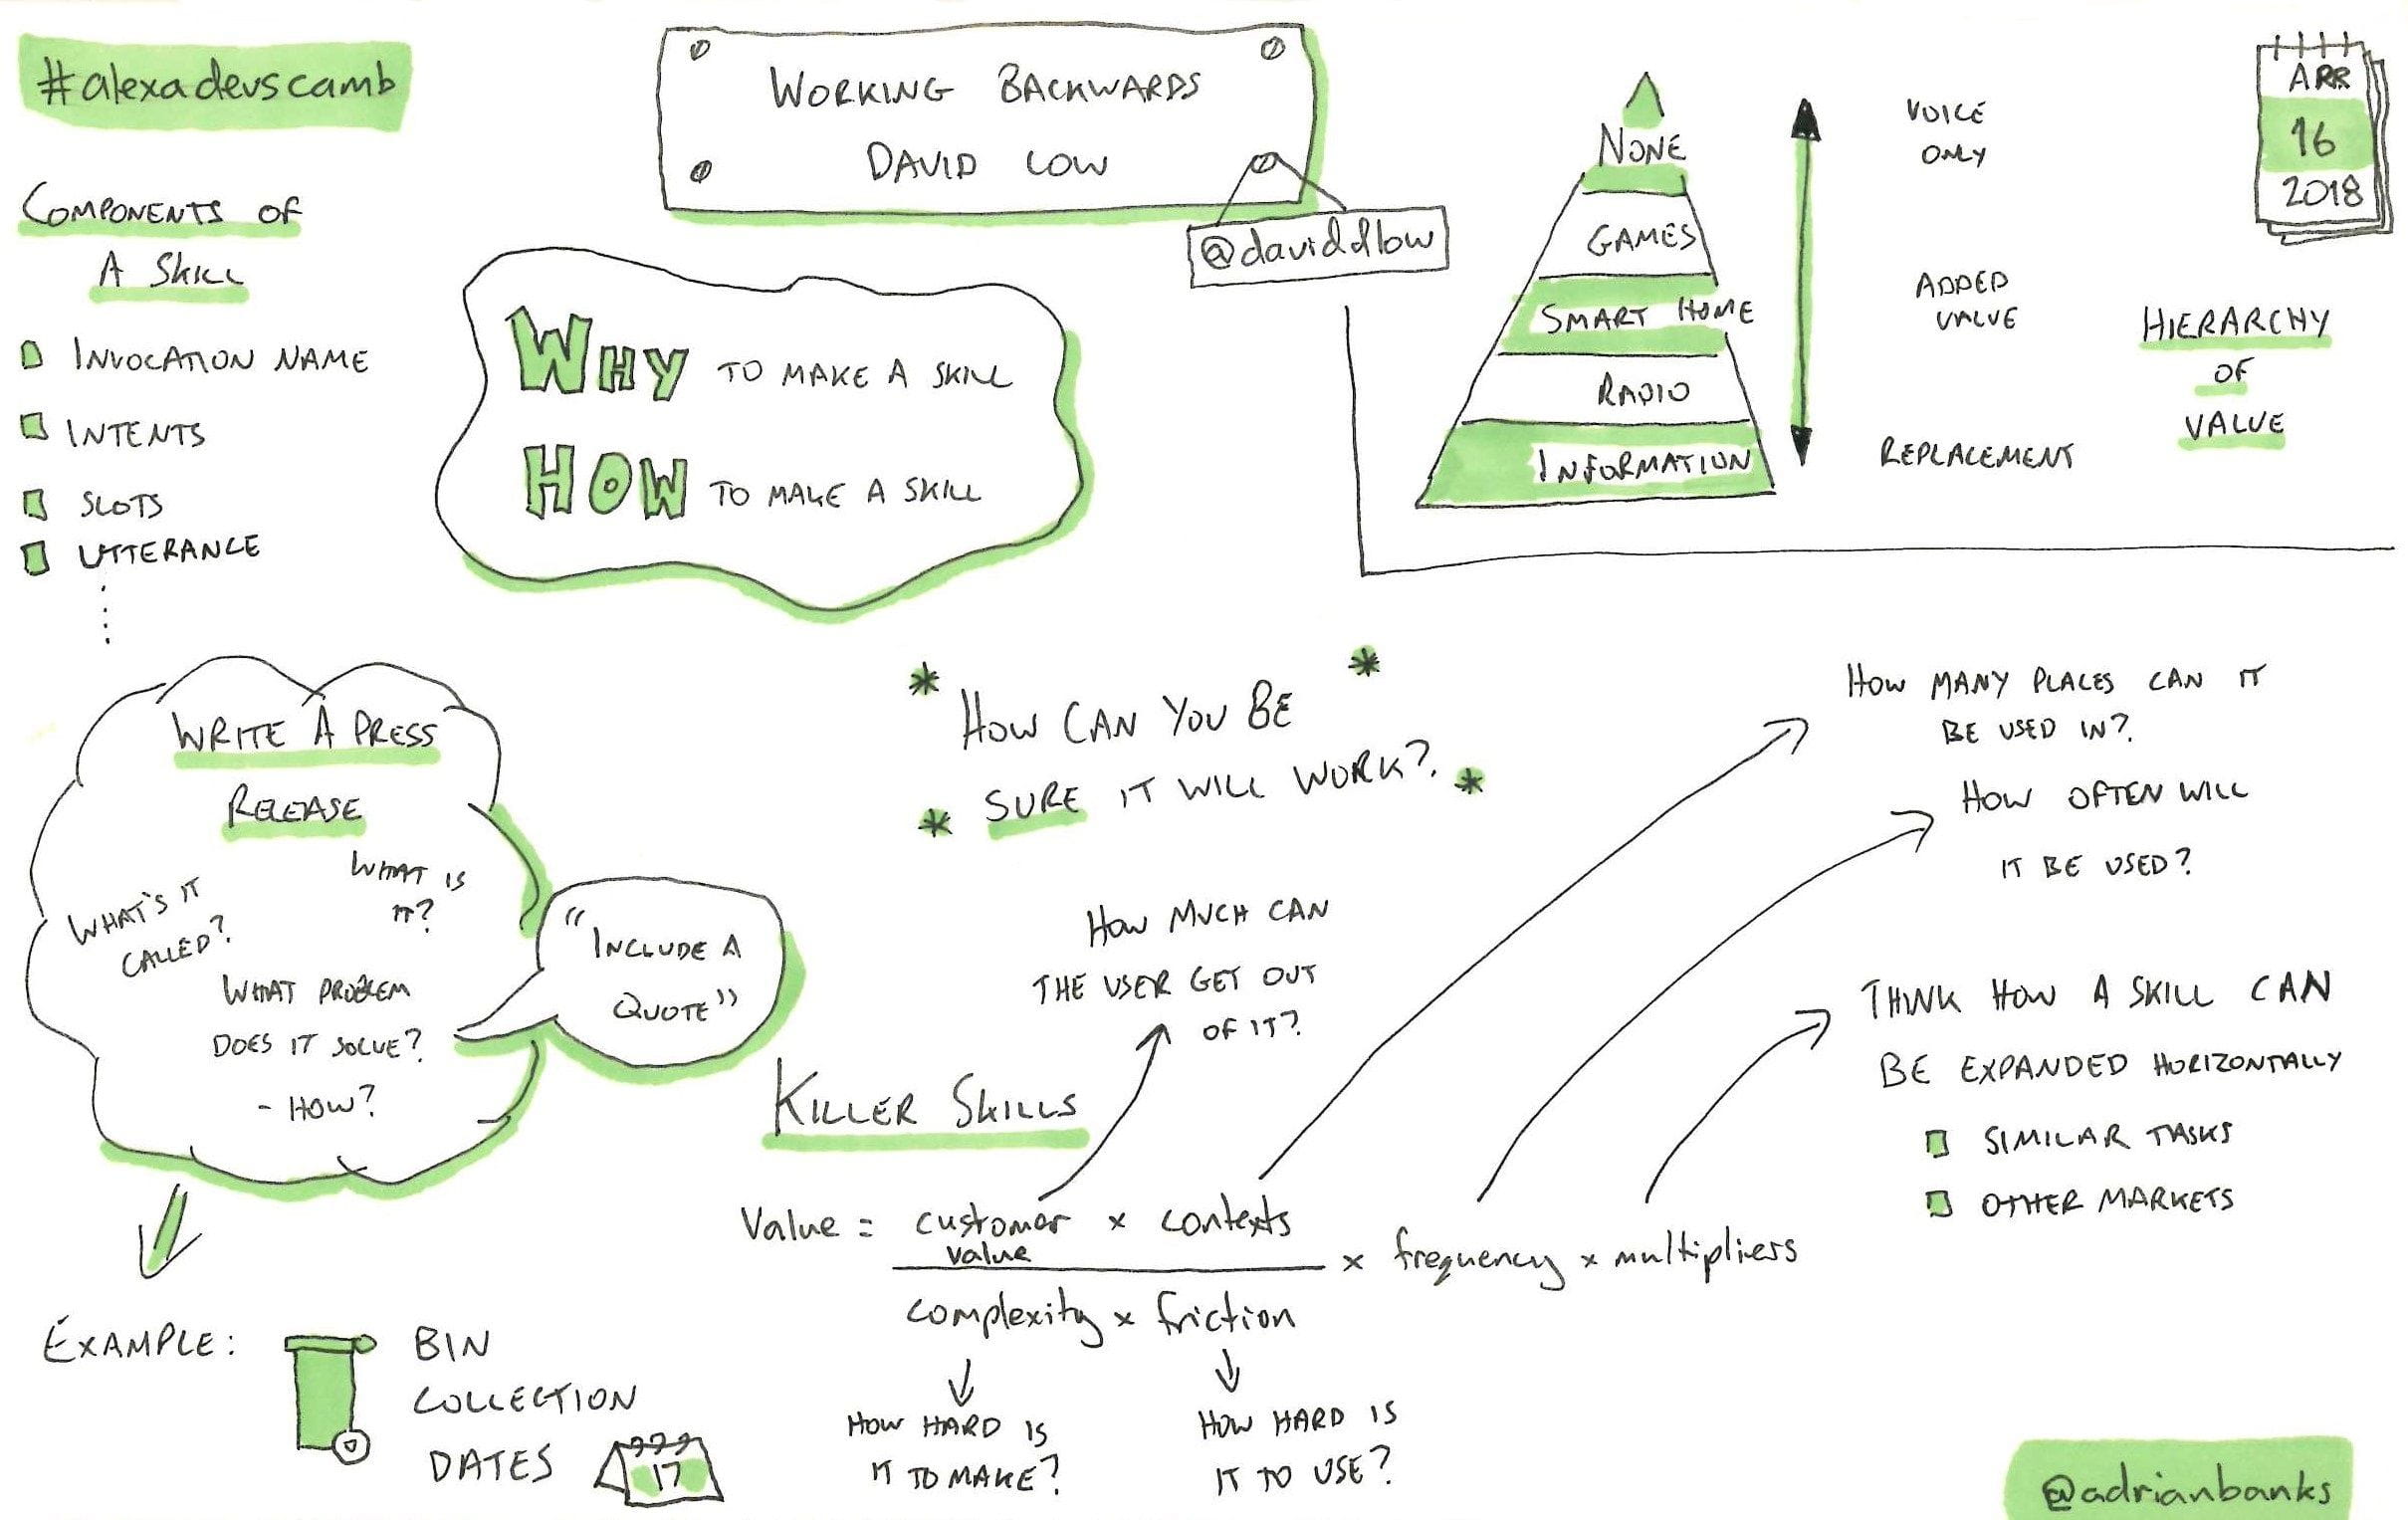 #alexadevscamb
WORKING BACKWARDS
DAVID LOW
@daviddlow
APR
16
2018
COMPONENTS OF
A SKILL
INVOCATION NAME
INTENTS
SLOTS
UTTERANCE
WHY TO MAKE A SKILL
HOW TO MAKE A SKILL
NONE
GAMES
SMART HOME
RADIO
INFORMATION
VOICE
ONLY
ADDED
VALUE
REPLACEMENT
HIERARCHY
OF
VALUE
WRITE A PRESS
RELEASE
WHAT'S IT
CALLED?
WHAT IS
IT?
WHAT PROBLEM
DOES IT SOLVE?
- HOW?
"INCLUDE A
QUOTE"
EXAMPLE:
BIN
COLLECTION
DATES
17
* HOW CAN YOU BE *
* SURE IT WILL WORK? *
KILLER SKILLS
HOW MUCH CAN
THE USER GET OUT
OF IT?
HOW MANY PLACES CAN IT
BE USED IN?
HOW OFTEN WILL
IT BE USED?
THINK HOW A SKILL CAN
BE EXPANDED HORIZONTALLY
SIMILAR TASKS
OTHER MARKETS
Value = customer x contexts
value
x frequency x multipliers
complexity x friction
HOW HARD IS
IT TO MAKE?
HOW HARD IS
IT TO USE?
@adrianbanks